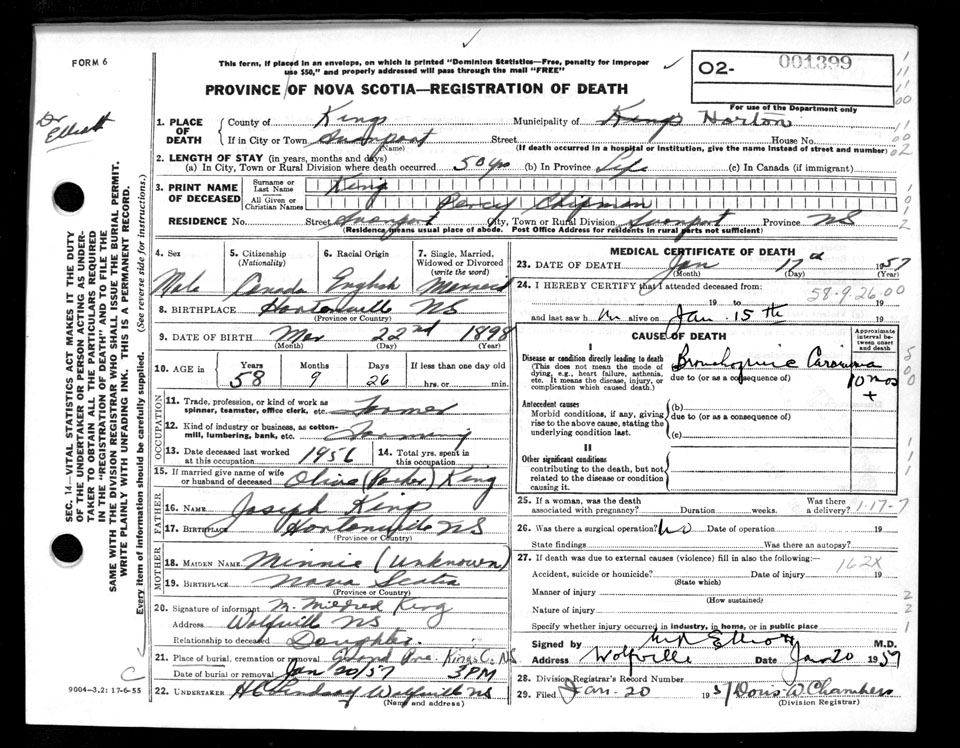 FORM 6
This form, if placed in an envelope, on which is printed "Dominion Statistics—Free, penalty for improper
use $50," and properly addressed will pass through the mail "FREE"
02- 001399
For use of the Department only
PROVINCE OF NOVA SCOTIA—REGISTRATION OF DEATH
Dr
Elliott
1. PLACE OF DEATH
County of Kings Municipality of Kings Horton
If in City or Town Avonport Street House No.
(Name) (If death occurred in a hospital or institution, give the name instead of street and number)
2. LENGTH OF STAY (in years, months and days)
(a) In City, Town or Rural Division where death occurred 50 yrs (b) In Province Life (c) In Canada (if immigrant)
3. PRINT NAME OF DECEASED
Surname or Last Name King
All Given or Christian Names Percy Chipman
RESIDENCE No. Street Avonport City, Town or Rural Division Avonport Province NS
(Residence means usual place of abode. Post Office Address for residents in rural parts not sufficient)
4. Sex 5. Citizenship (Nationality) 6. Racial Origin 7. Single, Married, Widowed or Divorced (write the word)
Male Canada English Married
8. BIRTHPLACE Hortonville NS
(Province or Country)
9. DATE OF BIRTH Mar 22nd 1898
(Month) (Day) (Year)
10. AGE in Years Months Days If less than one day old
58 9 26 hrs. or min.
OCCUPATION
11. Trade, profession, or kind of work as
spinner, teamster, office clerk, etc. Farmer
12. Kind of industry or business, as cotton-
mill, lumbering, bank, etc. Farming
13. Date deceased last worked at this occupation 1956 14. Total yrs. spent in this occupation
15. If married give name of wife
or husband of deceased Olive (Parker) King
FATHER
16. NAME Joseph King
17. BIRTHPLACE Hortonville NS
(Province or Country)
MOTHER
18. MAIDEN NAME Minnie (Unknown)
19. BIRTHPLACE Nova Scotia
(Province or Country)
20. Signature of informant M. Mildred King
Address Wolfville NS
Relationship to deceased Daughter.
21. Place of burial, cremation or removal Grand Pre Kings Co NS
Date of burial or removal Jan 20/57 3 PM
22. UNDERTAKER H C Lindsay Wolfville NS
(Name and address)
9004-3.2: 17-6-55
C
SEC. 14—VITAL STATISTICS ACT MAKES IT THE DUTY
OF THE UNDERTAKER OR PERSON ACTING AS UNDER-
TAKER TO OBTAIN ALL THE PARTICULARS REQUIRED
IN THE "REGISTRATION OF DEATH" AND TO FILE THE
SAME WITH THE DIVISION REGISTRAR WHO SHALL ISSUE THE BURIAL PERMIT.
WRITE PLAINLY WITH UNFADING INK. THIS IS A PERMANENT RECORD.
Every item of information should be carefully supplied. (See reverse side for instructions.)
MEDICAL CERTIFICATE OF DEATH
23. DATE OF DEATH Jan 17th 1957
(Month) (Day) (Year)
24. I HEREBY CERTIFY that I attended deceased from:
58-9-26-00
19 to 19
and last saw h im alive on Jan. 15th
CAUSE OF DEATH
Approximate interval between onset and death
I
Disease or condition directly leading to death
(This does not mean the mode of
dying, e.g., heart failure, asthenia,
etc. It means the disease, injury, or
complication which caused death.)
Bronchogenic Carcinoma
due to (or as a consequence of)
10 mos
+
Antecedent causes
Morbid conditions, if any, giving
rise to the above cause, stating the
underlying condition last.
(b)
due to (or as a consequence of)
(c)
II
Other significant conditions
contributing to the death, but not
related to the disease or condition
causing it.
25. If a woman, was the death
associated with pregnancy? Duration weeks. Was there a delivery? 1-17-7
26. Was there a surgical operation? No Date of operation 19
State findings Was there an autopsy?
27. If death was due to external causes (violence) fill in also the following:—
162X
Accident, suicide or homicide? Date of injury 19
(State which)
Manner of injury
(How sustained)
Nature of injury
Specify whether injury occurred in industry, in home, or in public place
Signed by M.D.
Address Wolfville Date Jan 20 1957
28. Division Registrar's Record Number
29. Filed Jan. 20 1957 Doris W. Chambers
(Division Registrar)